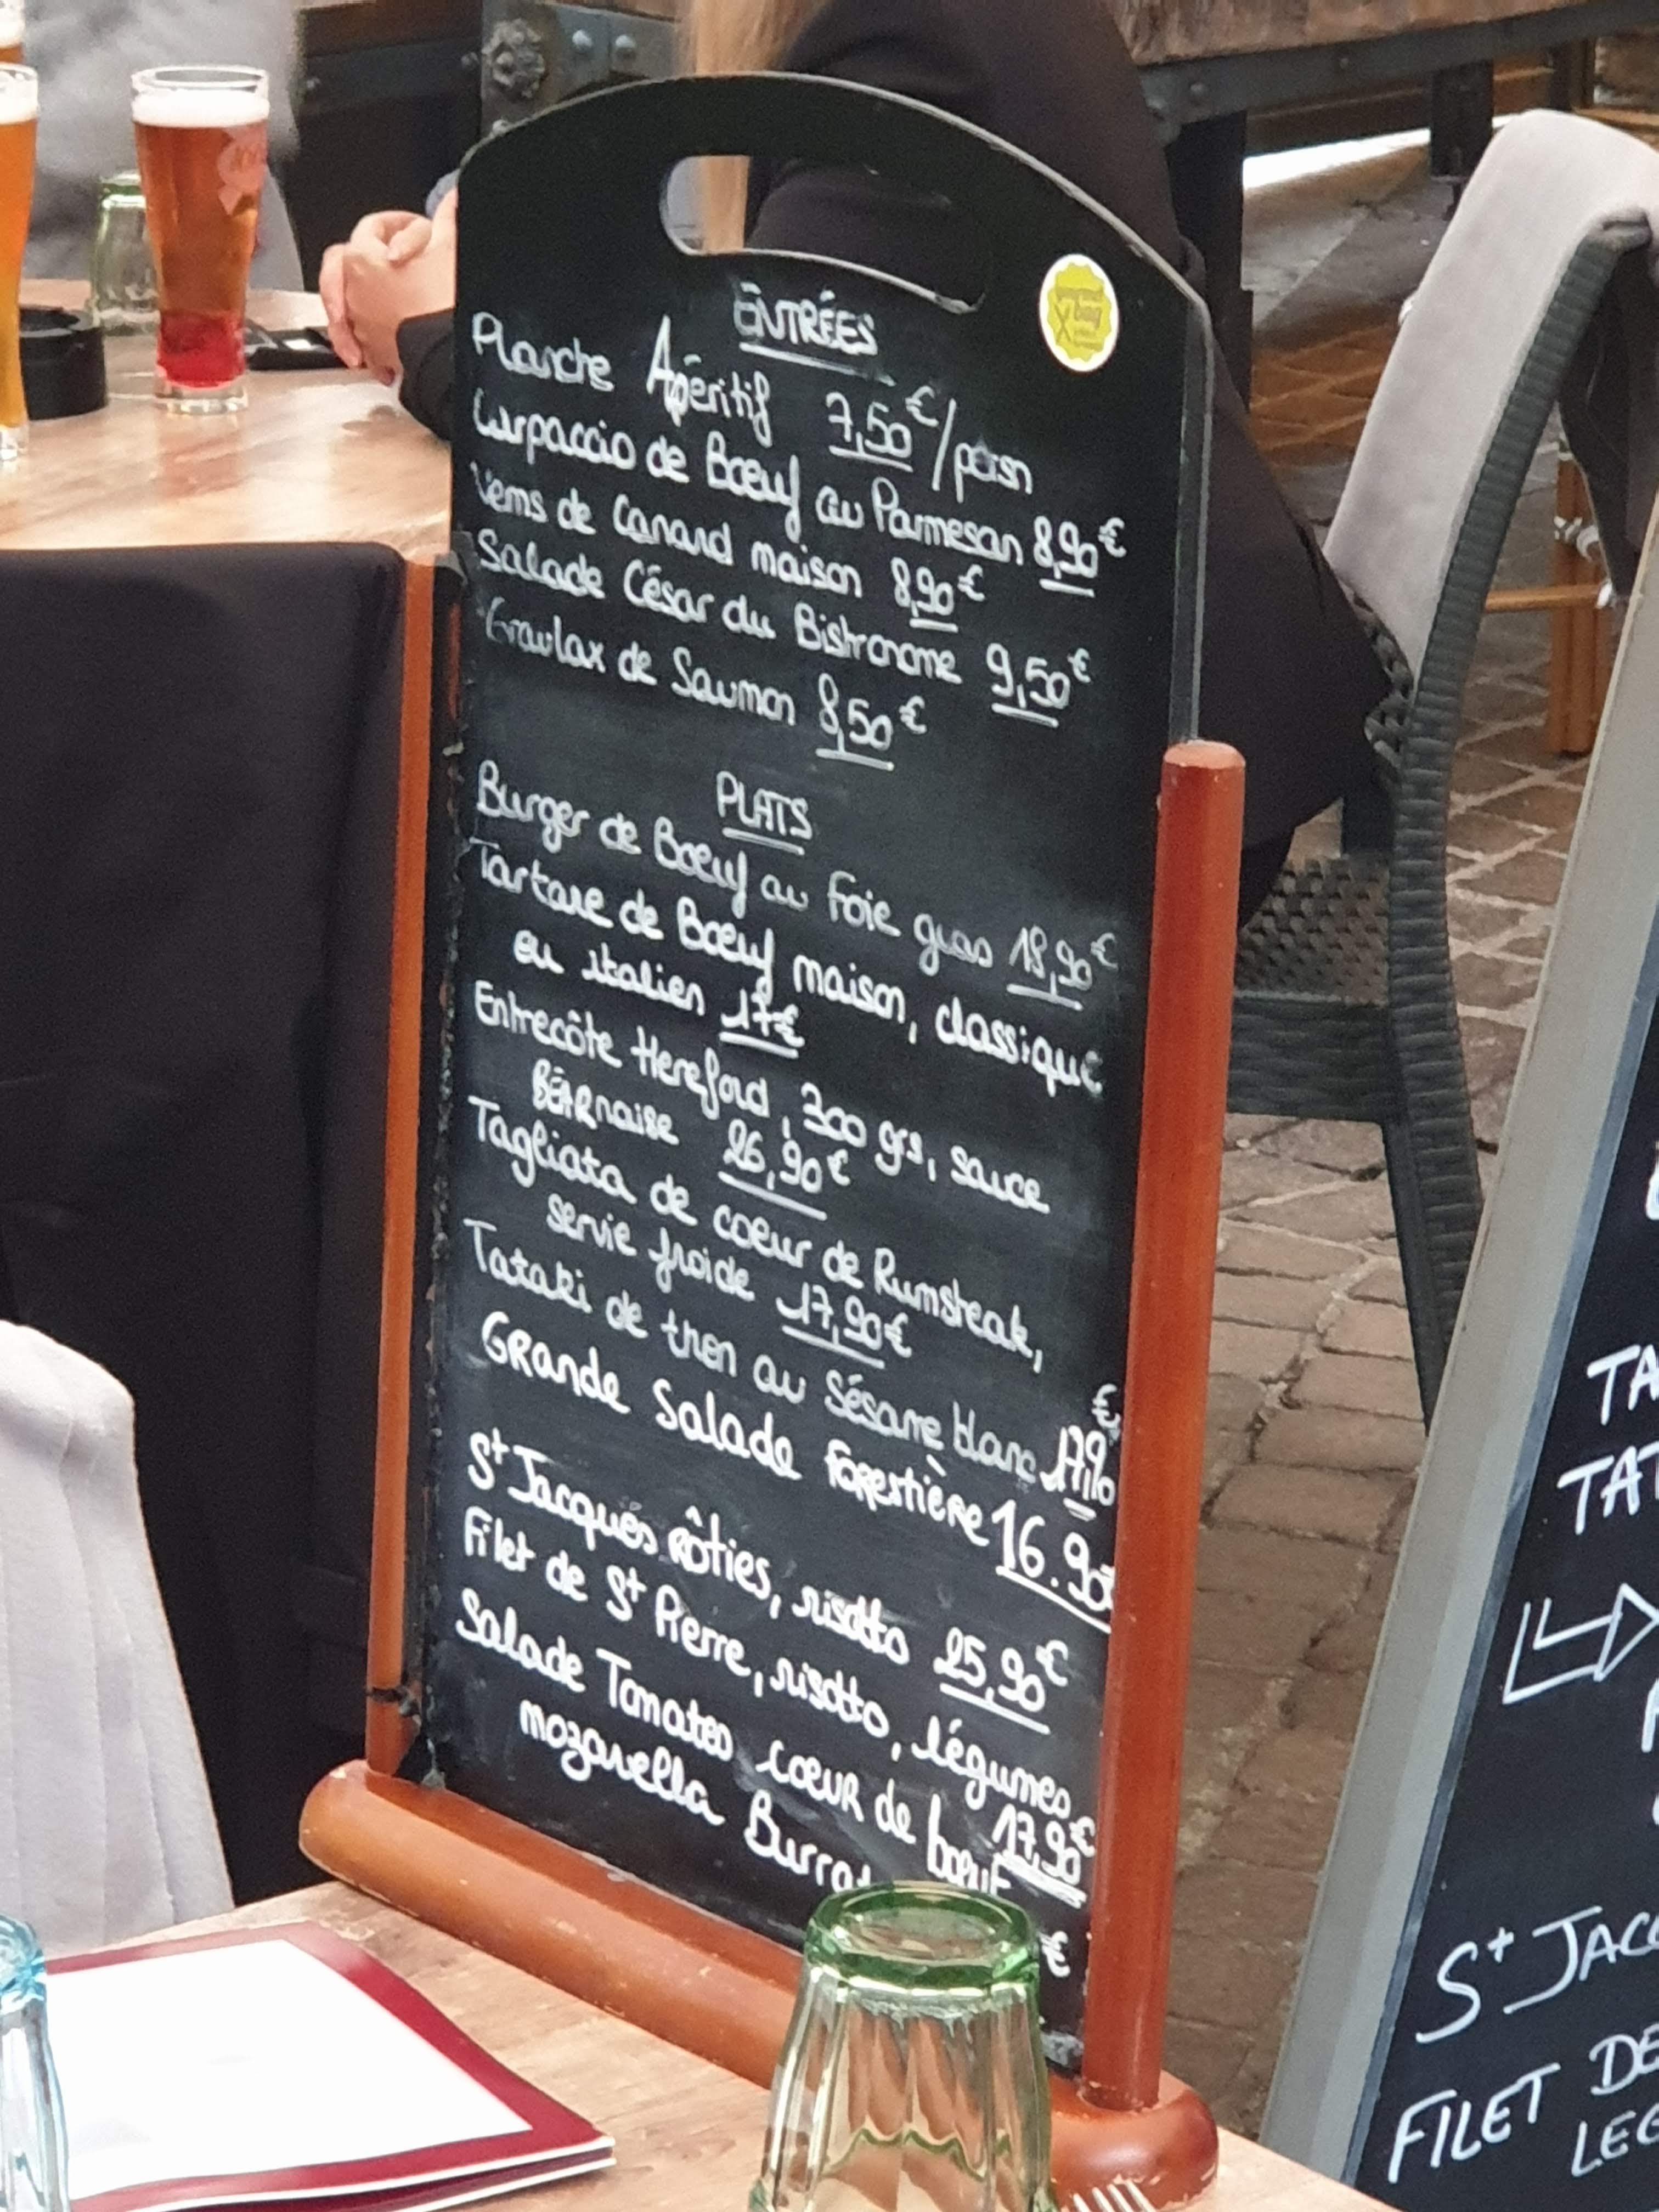 ENTRÉES
Planche Apéritif 7,50€/persn
Carpaccio de Bœuf au Parmesan 8,90€
Nems de Canard maison 8,90€
Salade César du Bistronome 9,50€
Gravlax de Saumon 8,50€
PLATS
Burger de Bœuf au Foie gras 18,90€
Tartare de Bœuf maison, classique
ou italien 17€
Entrecôte Hereford, 300 grs, sauce
BÉARnaise 26,90€
Tagliata de coeur de Rumsteak,
servie froide 17,90€
Tataki de thon au Sésame blanc 17,90€
GRande Salade Forestière 16.90€
St Jacques Rôties, risotto 25,90€
Filet de St Pierre, risotto, légumes
17,90€
Salade Tomates coeur de boeuf
mozarella Burrat
€
bag
TA
TAT
St JACQ
FILET DE
LEG